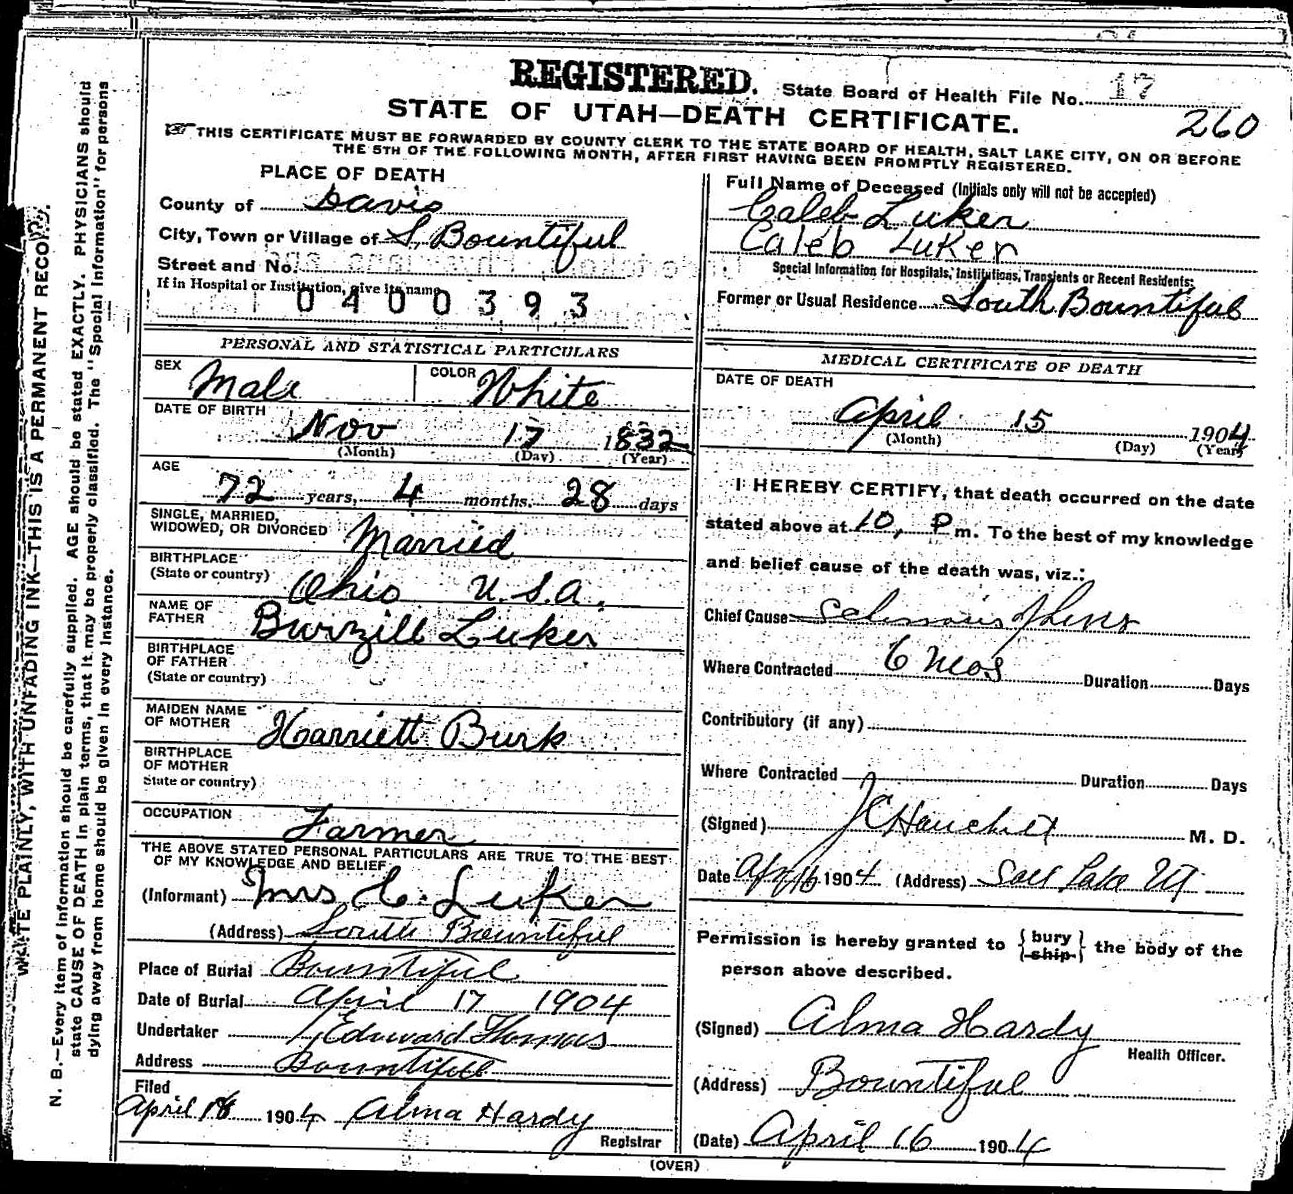 REGISTERED.
State Board of Health File No. 17
260
STATE OF UTAH—DEATH CERTIFICATE.
THIS CERTIFICATE MUST BE FORWARDED BY COUNTY CLERK TO THE STATE BOARD OF HEALTH, SALT LAKE CITY, ON OR BEFORE
THE 5TH OF THE FOLLOWING MONTH, AFTER FIRST HAVING BEEN PROMPTLY REGISTERED.
PLACE OF DEATH
County of Davis
City, Town or Village of S. Bountiful
Street and No.
If in Hospital or Institution, give its name
0400393
Full Name of Deceased (Initials only will not be accepted)
Caleb Luker
Caleb Luker
Special Information for Hospitals, Institutions, Transients or Recent Residents:
Former or Usual Residence South Bountiful
PERSONAL AND STATISTICAL PARTICULARS
SEX Male COLOR White
DATE OF BIRTH
Nov 17 1832
(Month) (Day) (Year)
AGE
72 years, 4 months, 28 days
SINGLE, MARRIED,
WIDOWED, OR DIVORCED Married
BIRTHPLACE
(State or country) Ohio U.S.A.
NAME OF
FATHER Burzill Luker
BIRTHPLACE
OF FATHER
(State or country)
MAIDEN NAME
OF MOTHER Harriett Burk
BIRTHPLACE
OF MOTHER
State or country)
OCCUPATION Farmer
THE ABOVE STATED PERSONAL PARTICULARS ARE TRUE TO THE BEST
OF MY KNOWLEDGE AND BELIEF
(Informant) Mrs C. Luker
(Address) South Bountiful
Place of Burial Bountiful
Date of Burial April 17 1904
Undertaker Edward Thomas
Address Bountiful
Filed
April 18 1904 Alma Hardy
Registrar
MEDICAL CERTIFICATE OF DEATH
DATE OF DEATH
April 15 1904
(Month) (Day) (Year)
I HEREBY CERTIFY, that death occurred on the date
stated above at 10, P m. To the best of my knowledge
and belief cause of the death was, viz.:
Chief Cause of Liver
Where Contracted 6 mos Duration Days
Contributory (if any)
Where Contracted Duration Days
(Signed) M. D.
Date Apr 16 1904 (Address) Salt Lake Ut
Permission is hereby granted to {bury ship} the body of the
person above described.
(Signed) Alma Hardy
Health Officer.
(Address) Bountiful
(Date) April 16 1904
(OVER)
WRITE PLAINLY, WITH UNFADING INK—THIS IS A PERMANENT RECORD.
N. B.—Every item of information should be carefully supplied. AGE should be stated EXACTLY. PHYSICIANS should
state CAUSE OF DEATH in plain terms, that it may be properly classified. The "Special Information" for persons
dying away from home should be given in every instance.